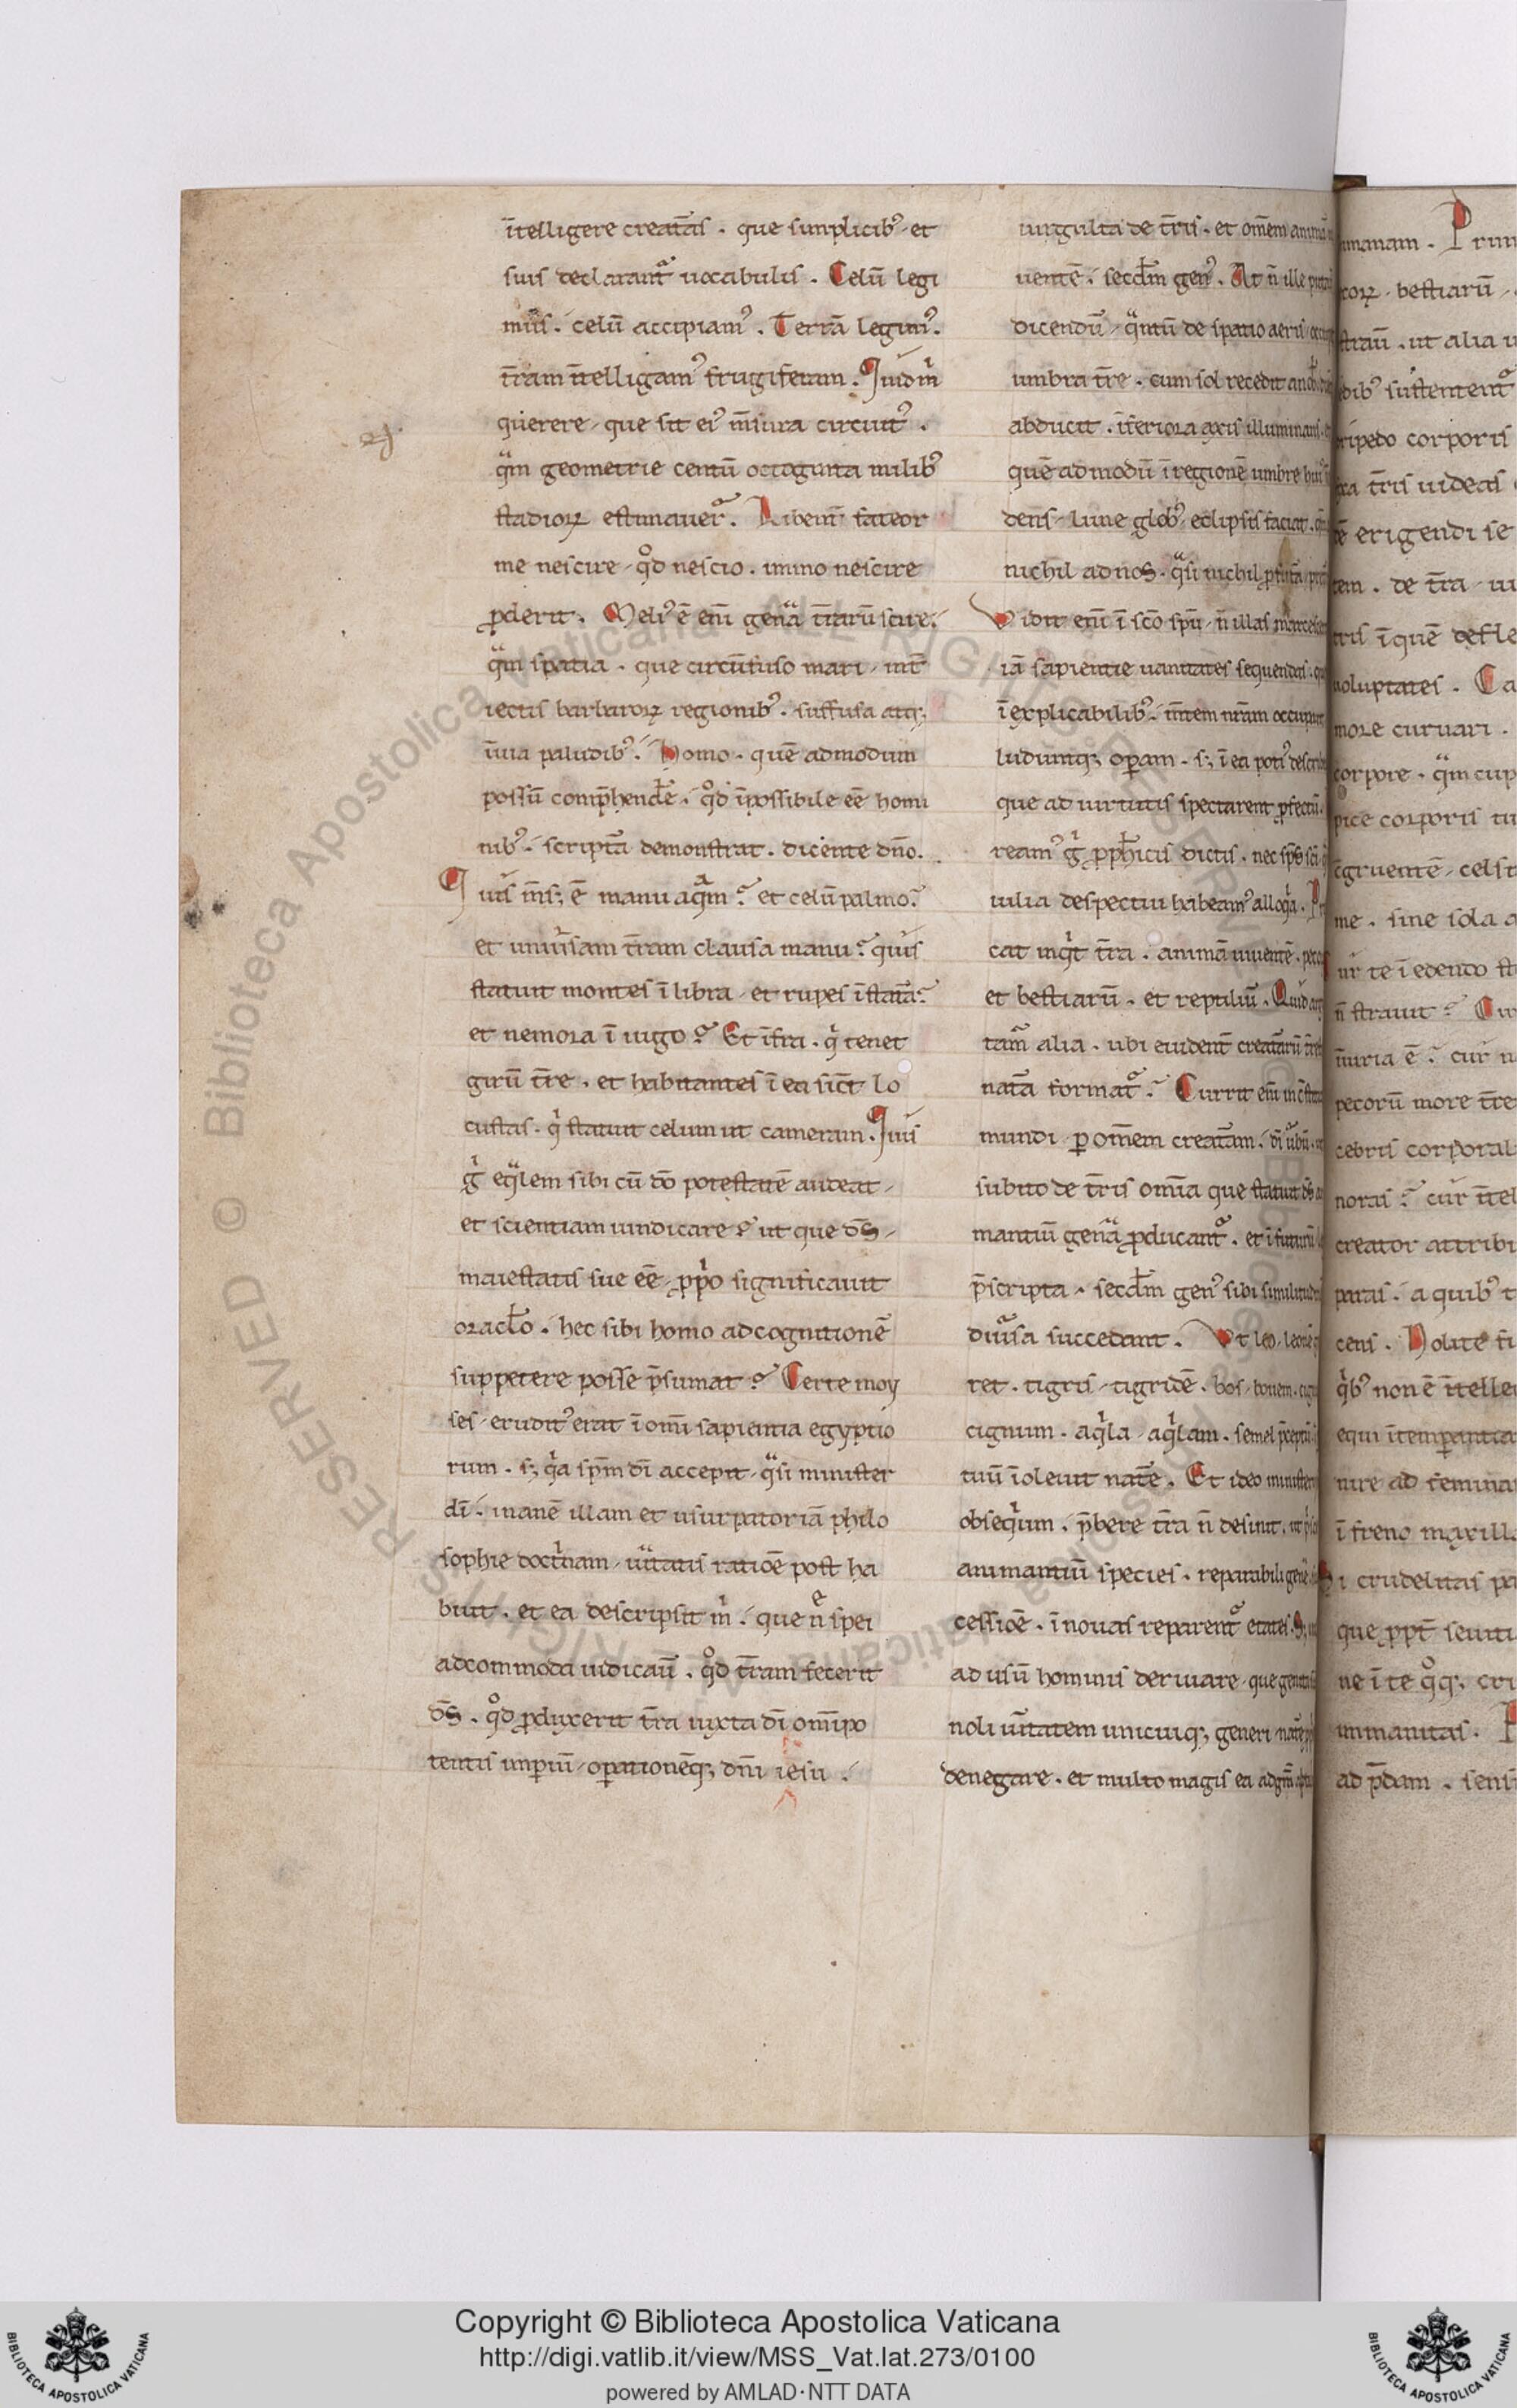 ītelligere creat̄as . que simplicib᷒ . et
suis declarant᷑ uocabulis . Celū legi
mus . celū accipiam᷒ . Terrā legim᷒ .
t̄ram īteligam᷒ frugiferam . Quid m̄
querere , que sit ei᷒ m̄sura circuit᷒ .
q̄m geometrie centū octoginta milib᷒
stadioꝝ estimauer̄ . Libent̄ fateor
me nescire , qd̄ nescio . immo nescire
ꝓderit . Meli᷒ ē eni̅ gen̄a t̄rarū scire .
q̄m spatia . que circūfuso mari , int̄
iectis barbaroꝝ regionib᷒ . suffusa atqꝫ
īuia paludib᷒ . Homo . quē admodum
possū comp̄hendēe . qd̄ īpossibile eē homi
nib᷒ . script̄a demonstrat . dicente dn̄o .
Quis m̄sꝫ ē manu aq̄m ? et celū palmo ?
et uniūsam t̄ram clausa manu ? quis
statuit montes ī libra , et rupes ī stat̄a ?
et nemora ī iugo ? Et īfra . q̇ tenet
girū t̄re . et habitantes ī ea sic̄t lo
custas . q̇ statuit celum ut cameram . Quis
g̊ eq̄lem sibi cū dō potestatē audeat ,
et scientiam uindicare ? ut que d̄s ,
maiestatis sue eē , ꝓp̊o significauit
oracl̄o . hec sibi homo ad cognitionē
suppetere posse p̄sumat ? Certe moy
ses , erudit᷒ erat ī om̄i sapientia egyptio
rum . sꝫ q̇a sp̄m dī accepit , q̄si minister
dī . inanē illam et usurpatoriā philo
sophie doct̊nam , ūitatis ratioē post ha
buit . et ea descripsit m̊ . que n̄re spei
adcommoda iudicau̅ . qd̄ t̄ram fecerit
d̄s . qd̄ ꝓduxerit t̄ra iuxta dī om̄ipo
tentis imꝑiū , oꝑationēqꝫ dn̄i iesu .
uirgulta de t̄ris . et om̄em animā
uentē . secd̄m gen᷒ . At n̄ ille
dicendū , q̄ntū de spatio aeris
umbra t̄re . cum sol recedit
abducit . īferiora axis illuminans .
quē admodū ī regionē umbre
dens , lune glob᷒ . eclipsis faciat .
nichil ad nos . q̄si nichil
Vidit eni̅ ī sc̄o sp̄u , n̄ illas
iā sapientie uanitates sequendas .
īexplicabilib᷒ . m̄tem nr̄am occupant
luduntqꝫ oꝑam . sꝫ ī ea poti᷒
que ad uirtutis spectarent ꝓfectū .
ream᷒ g̊ ꝓph̄icis dictis . nec
uilia despectui habeam᷒ alloq̊a .
cat inq̊t t̄ra . animā uiuentē .
et bestiarū . et reptiliū . Quid
tam̄ alia . ubi euident̄ creat̄arū
nat̄a format᷑ ? Currit eni̅
mundi , ꝑ om̄em creat̄am . dī
subito de t̄ris om̄ia que statuit d̄s
mantiū gen̄a ꝓducant᷑ . et ī futurū
p̄scripta . secd̄m gen᷒ sibi
diūsa succedant . Vt leo , leonē
ret . tigris , tigridē . bos , bouem .
cignum . aq̊la , aq̊lam . semel p̄ceptū
tuū īoleuit nat̄e . Et ideo
obseq̊um . p̄bere t̄ra n̄ desinit .
animantiū species . reparabili
cessioē . ī nouas reparent᷑ etates .
ad usū hominis deriuare , que
noli ūitatem unicuiqꝫ generi
denegare . et multo magis ea
manam . Prim
coꝝ , bestiarū ,
strau̅ . ut alia
dib᷒ sustentent᷑
ripedo corporis
t̄ris uideas
erigendi se
tem . de t̄ra
ī quē defle
uoluptates . Ca
more curuari .
corpore . q̄m cup
pice corporis
c̄gruentē , celest
me . sine sola
te ī edendo
n̄ strauit ?
n̄iuria ē ? cur
pecorū more t̄re
cebris corporal
noras ? cur ītel
creator attribi
paras . a quib᷒
cens . Nolite fi
q̊b᷒ non ē ītelle
equi ītemꝑantia
nire ad femina
ī freno maxill
crudelitas
que ꝓpt̄ seuiti
ne ī te q̊qꝫ cri
immanitas .
ad p̄dam . sens
Copyright © Biblioteca Apostolica Vaticana
http://digi.vatlib.it/view/MSS_Vat.lat.273/0100
powered by AMLAD·NTT DATA
BIBLIOTECA APOSTOLICA VATICANA
BIBLIOTECA APOSTOLICA VATICANA